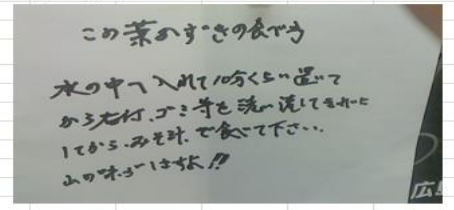 この葉かずきの食べ方
水の中へ入れて10分くらい置いて
から石付、ゴミ等を洗い流してきれいに
してから、みそ汁で食べて下さい。
山の味がしますよ!!
広